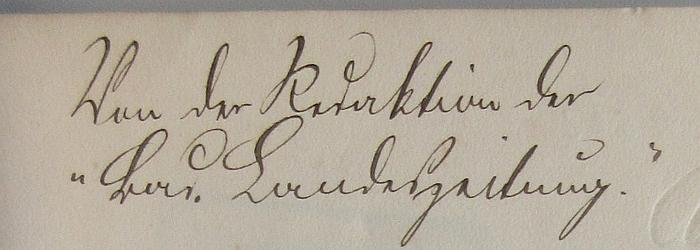 Von der Redaktion der
"Bad. Landeszeitung."